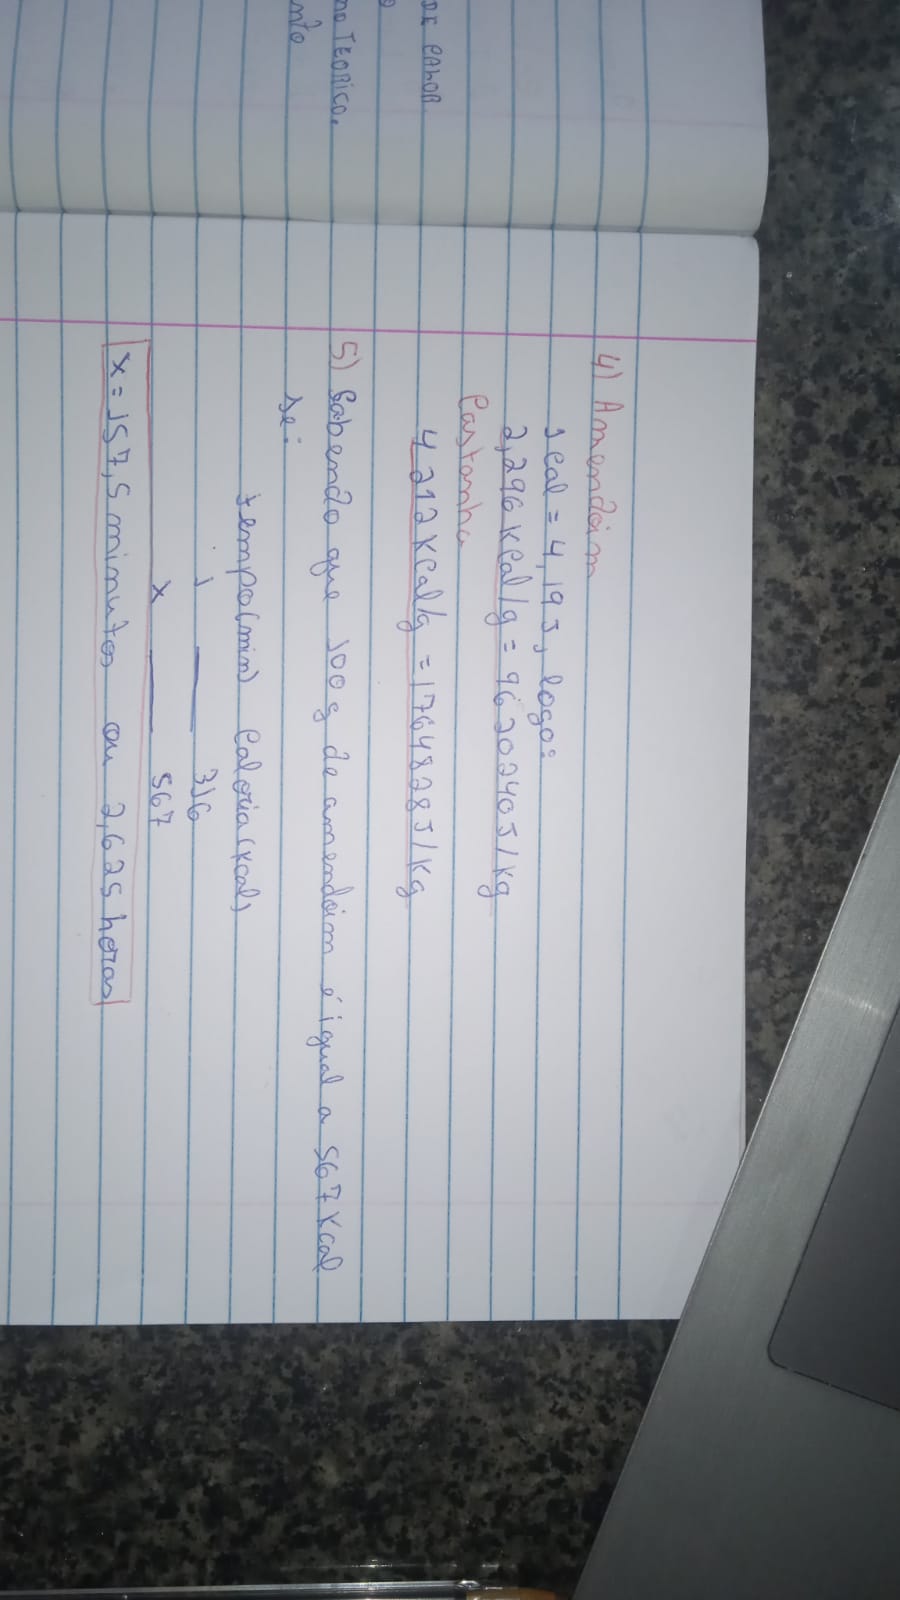 DE CALOR
NO TEORICO.
nto
4) Amendoim
1 cal = 4,19 J, logo:
2,296 Kcal/g = 9620240 J/kg
Castanha
4 212 Kcal/g = 17648 28 J/Kg
5) Sabendo que 100 g de amendoim é igual a 567 Kcal
se:
tempo(min) Caloria(Kcal)
1 — 3,6
x — 567
x = 157,5 minutos ou 2,625 horas